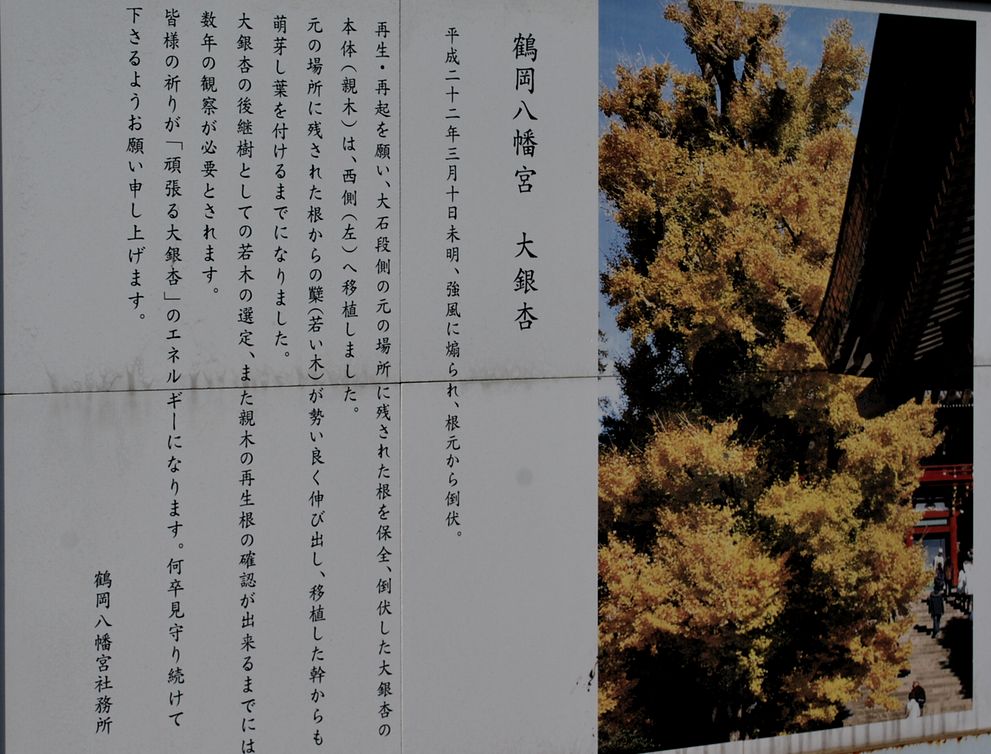 鶴岡八幡宮　大銀杏
平成二十二年三月十日未明、強風に煽られ、根元から倒伏。
再生・再起を願い、大石段側の元の場所に残された根を保全、倒伏した大銀杏の
本体（親木）は、西側（左）へ移植しました。
元の場所に残された根からの蘖（若い木）が勢い良く伸び出し、移植した幹からも
萌芽し葉を付けるまでになりました。
大銀杏の後継樹としての若木の選定、また親木の再生根の確認が出来るまでには
数年の観察が必要とされます。
皆様の祈りが「頑張る大銀杏」のエネルギーになります。何卒見守り続けて
下さるようお願い申し上げます。
鶴岡八幡宮社務所